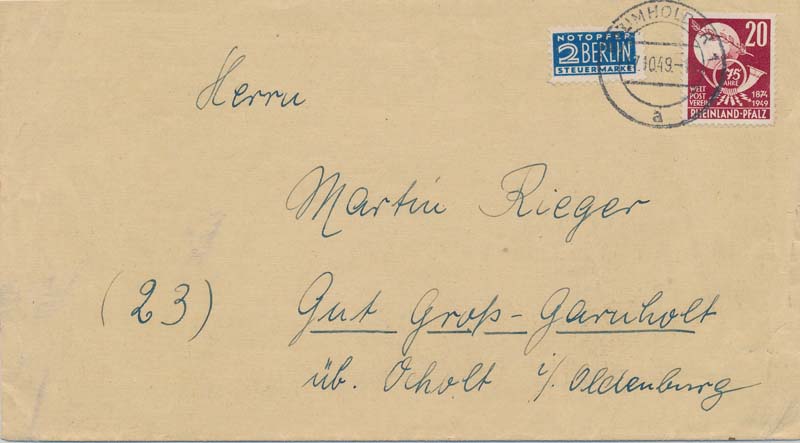 NOTOPFER
2 BERLIN
STEUERMARKE
7.10.49.-
a
20
75
JAHRE
WELT
POST
VEREIN
1874
1949
RHEINLAND-PFALZ
Herrn
Martin Rieger
(23) Gut Groß-Garnholt
üb. Ocholt i/ Oldenburg